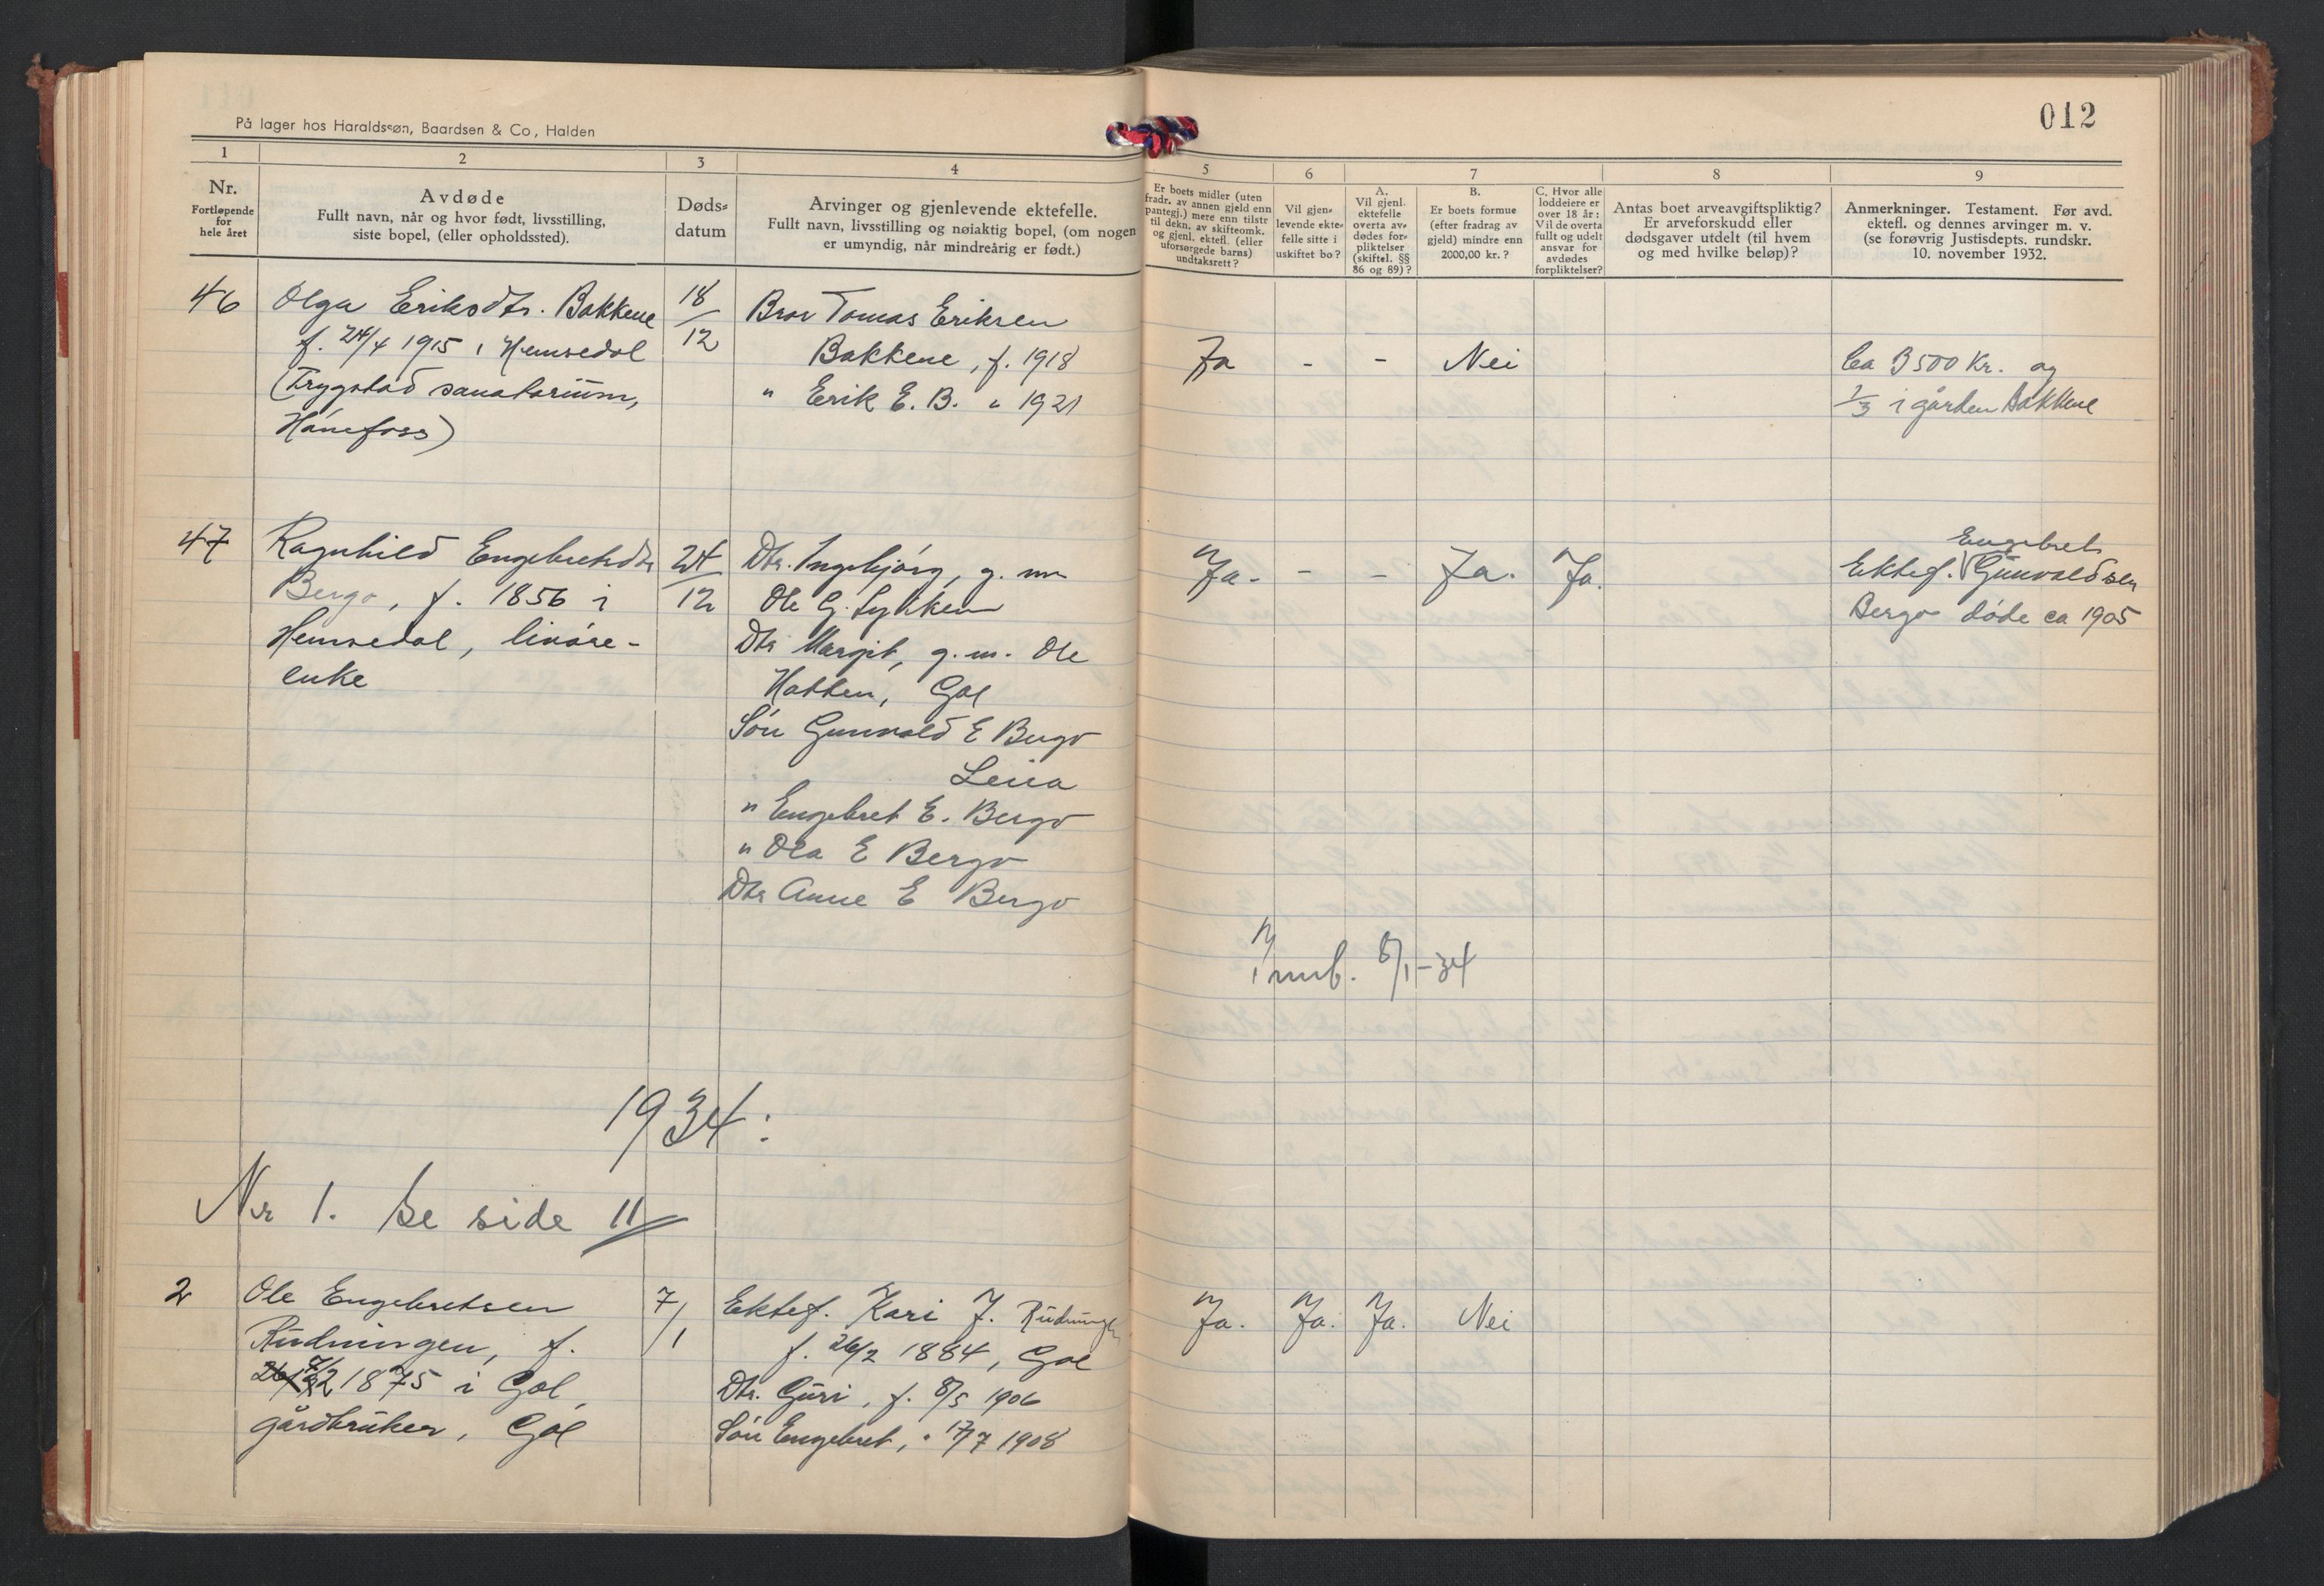 012
På lager hos Haraldssøn, Baardsen & Co, Halden
1
2
3
4
5
6
7
8
9
Nr.
Fortløpende
for
hele året
Avdøde
Fullt navn, når og hvor født, livsstilling,
siste bopel, (eller opholdssted).
Døds-
datum
Arvinger og gjenlevende ektefelle.
Fullt navn, livsstilling og nøiaktig bopel, (om nogen
er umyndig, når mindreårig er født.)
Er boets midler (uten
fradr. av annen gjeld enn
pantegj.) mere enn tilstr
til dekn. av skifteomk.
og gjenl. ektefl. (eller
uforsørgede barns)
undtaksrett?
Vil gjen-
levende ekte-
felle sitte i
uskiftet bo?
A.
Vil gjenl.
ektefelle
overta av-
dødes for-
pliktelser
(skiftel. §§
86 og 89)?
B.
Er boets formue
(efter fradrag av
gjeld) mindre enn
2000,00 kr.?
C. Hvor alle
loddeiere er
over 18 år:
Vil de overta
fullt og udelt
ansvar for
avdødes
forpliktelser?
Antas boet arveavgiftspliktig?
Er arveforskudd eller
dødsgaver utdelt (til hvem
og med hvilke beløp)?
Anmerkninger. Testament. Før avd.
ektefl. og dennes arvinger m. v.
(se forøvrig Justisdepts. rundskr.
10. november 1932.
46
Olga Eriksdtr. Bakkene
f. 24/4 1915 i Hemsedal
(Trygstad sanatorium,
Hønefoss)
18/12
Bror Tomas Eriksen
Bakkene, f. 1918
" Erik E. B. " 1921
Ja - - Nei
Ca 3500 Kr. og
1/3 i gården Bakkene
47
Ragnhild Engebretsdtr
Bergo, f. 1856 i
Hemsedal, livøre-
enke
24/12
Dtr. Ingebjørg, g. m
Ole G.
Dtr Margit, g. m. Ole
Hatten, Gol
Søn Gunvald E Bergo
" Engebret E. Bergo
" Ola E Bergo
Dtr Anne E Bergo
Ja. - - Ja. Ja.
Engebret
Ektef. Gunvaldsen
Bergo døde ca 1905
Innb. 8/1-34
1934:
Nr 1. Se side 11
2
Ole Engebretsen
Rudningen, f.
1875 i Gol,
gårdbruker, Gol
7/1
Ektef. Kari J. Rudningen
f. 26/2 1884, Gol
Dtr. Guri, f. 8/5 1906
Søn Engebret, " 17/7 1908
Ja. Ja. Ja. Nei